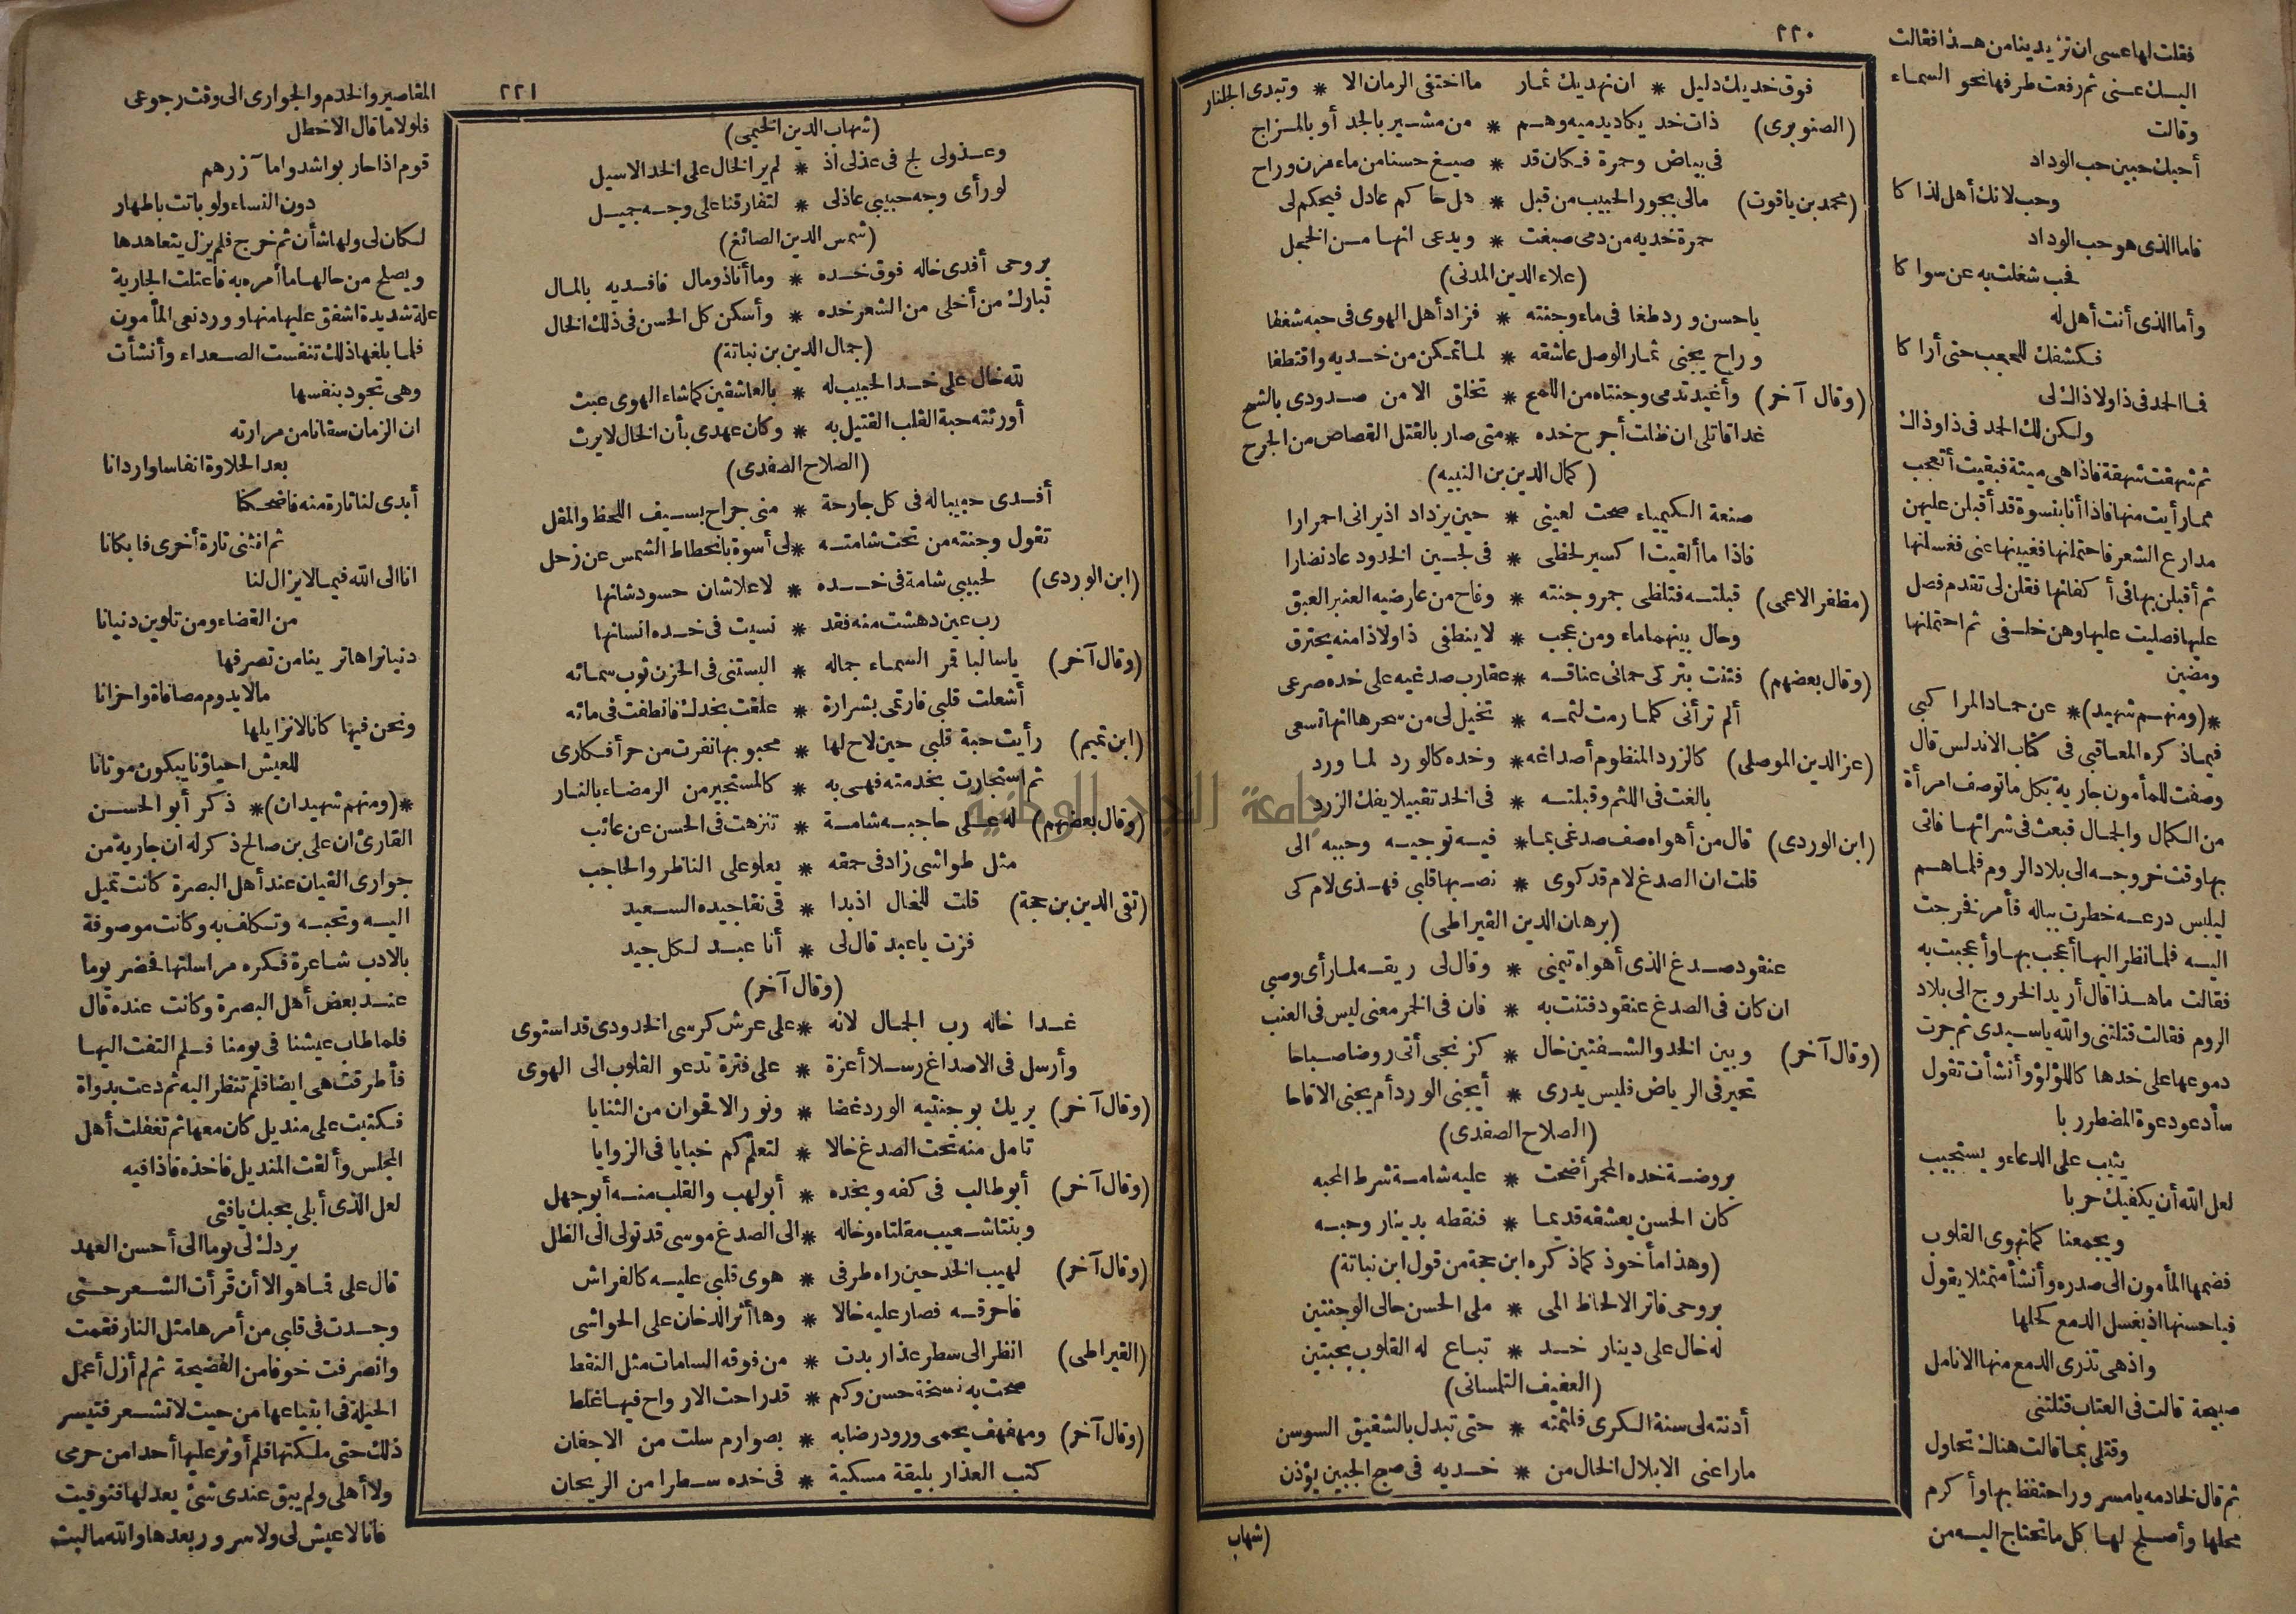 ٢٢٠
فوق خديك دليل * ان نهديك ثمار ما اختفى الرمان الا * وتبدى الجلنار
(الصنوبرى) ذات خد يكاد يدميه وهم * من مشير بالجد أو بالمزاج
فى بياض وحمرة فكان قد * صيغ حسنا من ماء مزن وراح
(محمد بن ياقوت) مالى بجور الحبيب من قبل * هل حاكم عادل فيحكم لى
حمرة خديه من دمى صبغت * ويدعى انها من الخجل
(علاء الدين المدنى)
يا حسن ورد طغا فى ماء وجنته * فزاد أهل الهوى فى حبه شغفا
وراح يجنى ثمار الوصل عاشقه * لما تمكن من خديه واقتطفا
(وقال آخر) وأغيد تدمى وجنتاه من اللمح * تخلق الا من صدودى بالشح
غدا قاتلى ان ظلت أجرح خده * متى صار بالقتل القصاص من الجرح
(كمال الدين بن النبيه)
صنعة الكيمياء صحت لعينى * حين يزداد اذ يرانى احمرارا
فاذا ما ألقيت اكسير لحظى * فى لجين الخدود عاد نضارا
(مظفر الاعمى) قبلته فتلظى جمر وجنته * وفاح من عارضيه العنبر العبق
وحال بينهما ماء ومن عجب * لا ينطفى ذا ولا ذا منه يحترق
(وقال بعضهم) فتنت بتركى حمانى عناقه * عقارب صدغيه على خده صرعى
ألم ترأنى كلما رمت لثمه * تخيل لى من سحرها انها تسعى
(عز الدين الموصلى) كالزرد المنظوم أصداغه * وخده كالورد لما ورد
بالغت فى اللثم وقبلته * فى الخد تقبيلا يفك الزرد
(ابن الوردى) قال من أهواه صف صدغى بما * فيه توجيه وحببه الى
قلت ان الصدغ لام قد كوى * نصبها قلبى فهذى لام كى
(برهان الدين القيراطى)
عنقود صدغ الذى أهواه تيمنى * وقال لى ريقه لما رأى وصبى
ان كان فى الصدغ عنقود فتنت به * فان فى الخمر معنى ليس فى العنب
(وقال آخر) وبين الخد والشفتين خال * كزنجى أتى روضا صباحا
تحير فى الرياض فليس يدرى * أيجنى الورد أم يجنى الاقاحا
(الصلاح الصفدى)
بروضة خده المحمر أضحت * عليه شامة شرط المحبه
كان الحسن يعشقه قديما * فنقطه بدينار وحبه
(وهذا مأخوذ كما ذكره ابن حجة من قول ابن نباتة)
بروحى فاتر الالحاظ المى * ملى الحسن حالى الوجنتين
له خال على دينار خد * تباع له القلوب بحبتين
(العفيف التلمسانى)
أدنته لى سنة الكرى فلثمته * حتى تبدل بالشقيق السوسن
ماراعنى الا بلال الخال من * خديه فى صبح الجبين يؤذن
(شهاب
فقلت لها عسى ان تزيدينا من هذا فقالت
اليك عنى ثم رفعت طرفها نحو السماء
وقالت
أحبك حبين حب الوداد
وحب لانك أهل لذاكا
فاما الذى هو حب الوداد
فحب شغلت به عن سواكا
وأما الذى أنت أهل له
فكشفك للحجب حتى أراكا
فما الحمد فى ذا ولا ذاك لى
ولكن لك الحمد فى ذا وذاك
ثم شهقت شهقة فاذا هى ميتة فبقيت أتعجب
مما رأيت منها فاذا أنا بنسوة قد أقبلن عليهن
مدارع الشعر فاحتملنها فغيبنها عنى فغسلنها
ثم أقبلن بها فى أكفانها فقلن لى تقدم فصل
عليها فصليت عليها وهن خلفى ثم احتملنها
ومضين
*(ومنهم شهيد)* عن حماد المراكبى
فيما ذكره المعاقبى فى كتاب الاندلس قال
وصفت للمأمون جارية بكل ما توصف امرأة
من الكمال والجمال فبعث فى شرائها فاتى
بها وقت خروجه الى بلاد الروم فلما هم
ليلبس درعه خطرت بباله فأمر فخرجت
اليه فلما نظر اليها أعجب بها وأعجبت به
فقالت ما هذا قال أريد الخروج الى بلاد
الروم فقالت قتلتنى والله يا سيدى ثم جرت
دموعها على خدها كاللؤلؤ وأنشأت تقول
سأدعو دعوة المضطر ربا
يثيب على الدعاء ويستجيب
لعل الله أن يكفيك حربا
ويجمعنا كما تهوى القلوب
فضمها المأمون الى صدره وأنشأ متمثلا يقول
فيا حسنها اذ يغسل الدمع كحلها
واذ هى تذرى الدمع منها الانامل
صبيحة قالت فى العتاب قتلتنى
وقتلى بما قالت هناك تحاول
ثم قال لخادمه يا مسرور احتفظ بها وأكرم
محلها وأصلح لها كل ما تحتاج اليه من
٢٢١
(شهاب الدين الخيمى)
وعذولى لج فى عذلى اذ * لم ير الخال على الخد الاسيل
لو رأى وجه حبيبى عاذلى * لتفارقنا على وجه جميل
(شمس الدين الصائغ)
بروحى أفدى خاله فوق خده * وما أنا ذو مال فافديه بالمال
تبارك من أخلى من الشعر خده * وأسكن كل الحسن فى ذلك الخال
(جمال الدين بن نباتة)
لله خال على خد الحبيب له * بالعاشقين كما شاء الهوى عبث
أورثته حبة القلب القتيل به * وكان عهدى بأن الخال لا يرث
(الصلاح الصفدى)
أفدى حبيبا له فى كل جارحة * منى جراح بسيف اللحظ والمقل
تقول وجنته من تحت شامته * لى أسوة بانحطاط الشمس عن زحل
(ابن الوردى) لحبيبى شامة فى خده * لا علاشان حسود شانها
رب عين دهشت منه فقد * نسيت فى خده انسانها
(وقال آخر) يا سالبا قمر السماء جماله * البستنى فى الحزن ثوب سمائه
أشعلت قلبى فارتمى بشرارة * علقت بخدك فانطفت فى مائه
(ابن تميم) رأيت حبة قلبى حين لاح لها * محبوبها نفرت من حر أفكارى
ثم استجارت بخدمته فهى به * كالمستجير من الرمضاء بالنار
(وقال بعضهم) له على حاجبه شامة * تنزهت فى الحسن عن عائب
مثل طواشى زاد فى حمقه * يعلو على الناظر والحاجب
(تقى الدين بن حجة) قلت للخال اذ بدا * فى نقا جيده السعيد
فزت يا عبد قال لى * أنا عبد لكل جيد
(وقال آخر)
غدا خاله رب الجمال لانه * على عرش كرسى الخدود قد استوى
وأرسل فى الاصداغ رسلا أعزة * على فترة تدعو القلوب الى الهوى
(وقال آخر) يريك بوجنتيه الورد غضا * ونور الاقحوان من الثنايا
تامل منه تحت الصدغ خالا * لتعلم كم خبايا فى الزوايا
(وقال آخر) أبو طالب فى كفه وبخده * أبو لهب والقلب منه أبو جهل
وبنتا شعيب مقلتاه وخاله * الى الصدغ موسى قد تولى الى الظل
(وقال آخر) لهيب الخد حين راه طرفى * هوى قلبى عليه كالفراش
فاحرقه فصار عليه خالا * وها أثر الدخان على الحواشى
(القيراطى) انظر الى سطر عذار بدت * من فوقه السامات مثل النقط
صحت به نسخة حسن وكم * قد راحت الارواح فيها غلط
(وقال آخر) ومهفهف يحمى ورود رضابه * بصوارم سلت من الاجفان
كتب العذار بليقة مسكية * فى خده سطرا من الريحان
المقاصير والخدم والجوارى الى وقت رجوعى
فلولا ما قال الاخطل
قوم اذا حاربوا شدوا مآزرهم
دون النساء ولو باتت باطهار
لكان لى ولها شأن ثم خرج فلم يزل يتعاهدها
ويصلح من حالها ما أمره به فاعتلت الجارية
علة شديدة اشفق عليها منها وورد نعى المأمون
فلما بلغها ذلك تنفست الصعداء وأنشأت
وهى تجود بنفسها
ان الزمان سقانا من مرارته
بعد الحلاوة انفاسا واردانا
أبدى لنا تارة منه فاضحكنا
ثم انثنى تارة أخرى فابكانا
انا الى الله فيما لا يزال لنا
من القضاء ومن تلوين دنيانا
دنيا نراها ترينا من تصرفها
مالا يدوم مصافاة واحزانا
ونحن فيها كانا لا نزايلها
للعيش احياؤنا يبكون موتانا
*(ومنهم شهيدان)* ذكر أبو الحسن
القارئ ان على بن صالح ذكر له ان جارية من
جوارى القيان عند أهل البصرة كانت تميل
اليه وتحبه وتكلف به وكانت موصوفة
بالادب شاعرة فكره مراسلتها فحضر يوما
عند بعض أهل البصرة وكانت عنده قال
فلما طاب عيشنا فى يومنا فلم التفت اليها
فأطرقت هى ايضا فلم تنظر اليه ثم دعت بدواة
فكتبت على منديل كان معها ثم تغفلت أهل
المجلس وألقت المنديل فاخذه فاذا فيه
لعل الذى أبلى بحبك يا فتى
يردك لى يوما الى أحسن العهد
قال على فما هو الا أن قرأت الشعر حتى
وجدت فى قلبى من أمرها مثل النار فقمت
وانصرفت خوفا من الفضيحة ثم لم أزل أعمل
الحيلة فى ابتياعها من حيث لا تشعر فتيسر
ذلك حتى ملكتها فلم أوثر عليها أحدا من حرمى
ولا أهلى ولم يبق عندى شئ يعدلها فتوفيت
فانا لا عيش لى ولا سرور بعدها والله ما لبث
جامعة النجاح الوطنية